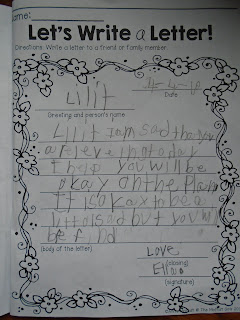 Name:
Let's Write a Letter!
Directions: Write a letter to a friend or family member.
Lilit
Date
Greeting and person's name
Lilit I am sad that you
are leveing today
I hop you will be
okay on the plan
It is okax to be a
littol sad but you will
be find
(body of the letter)
Love
(closing)
(signature)